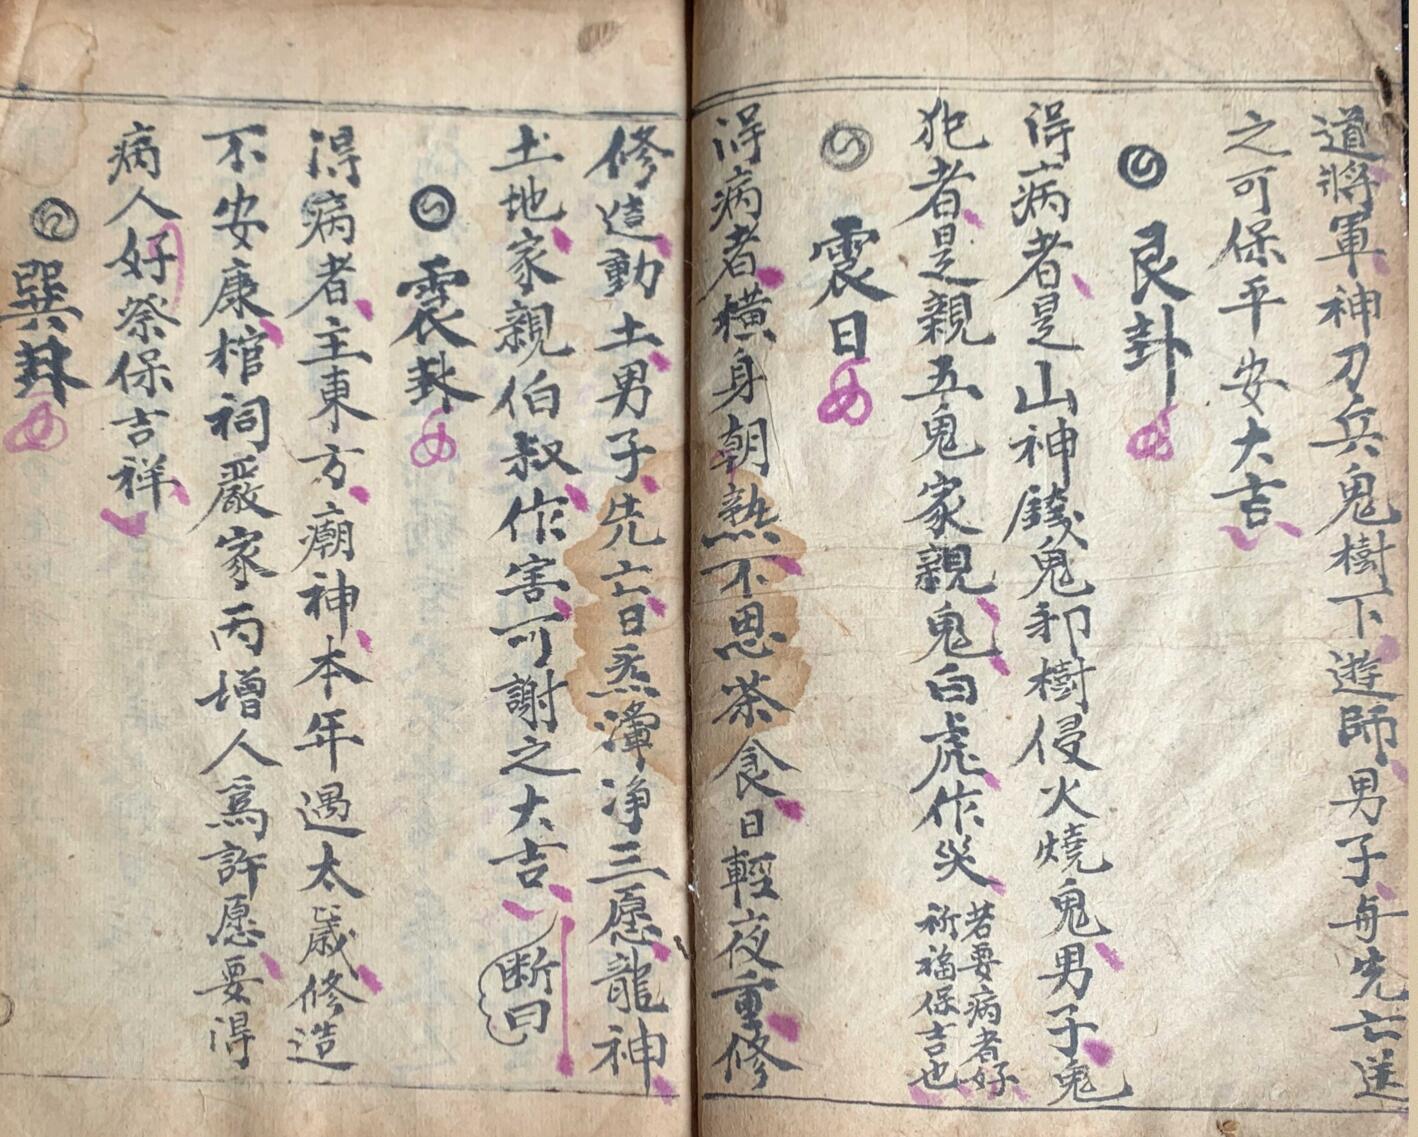 道將軍神刀兵鬼樹下遊師男子每先亡送
之可保平安大吉
艮卦
得病者是山神錢鬼邪樹侵火燒鬼男子鬼
犯者是親五鬼家親鬼白虎作災若要病者好
祈福保吉也
震日
得病者橫身朝熱不思茶食日輕夜重修
修造動土男子先亡日 淨三愿龍神
土地家親伯叔作害可謝之大吉
断曰
震卦
得病者主東方廟神本年遇太歲修造
不安康棺祠嚴家丙增人為許愿要得
病人好祭保吉祥
巽卦